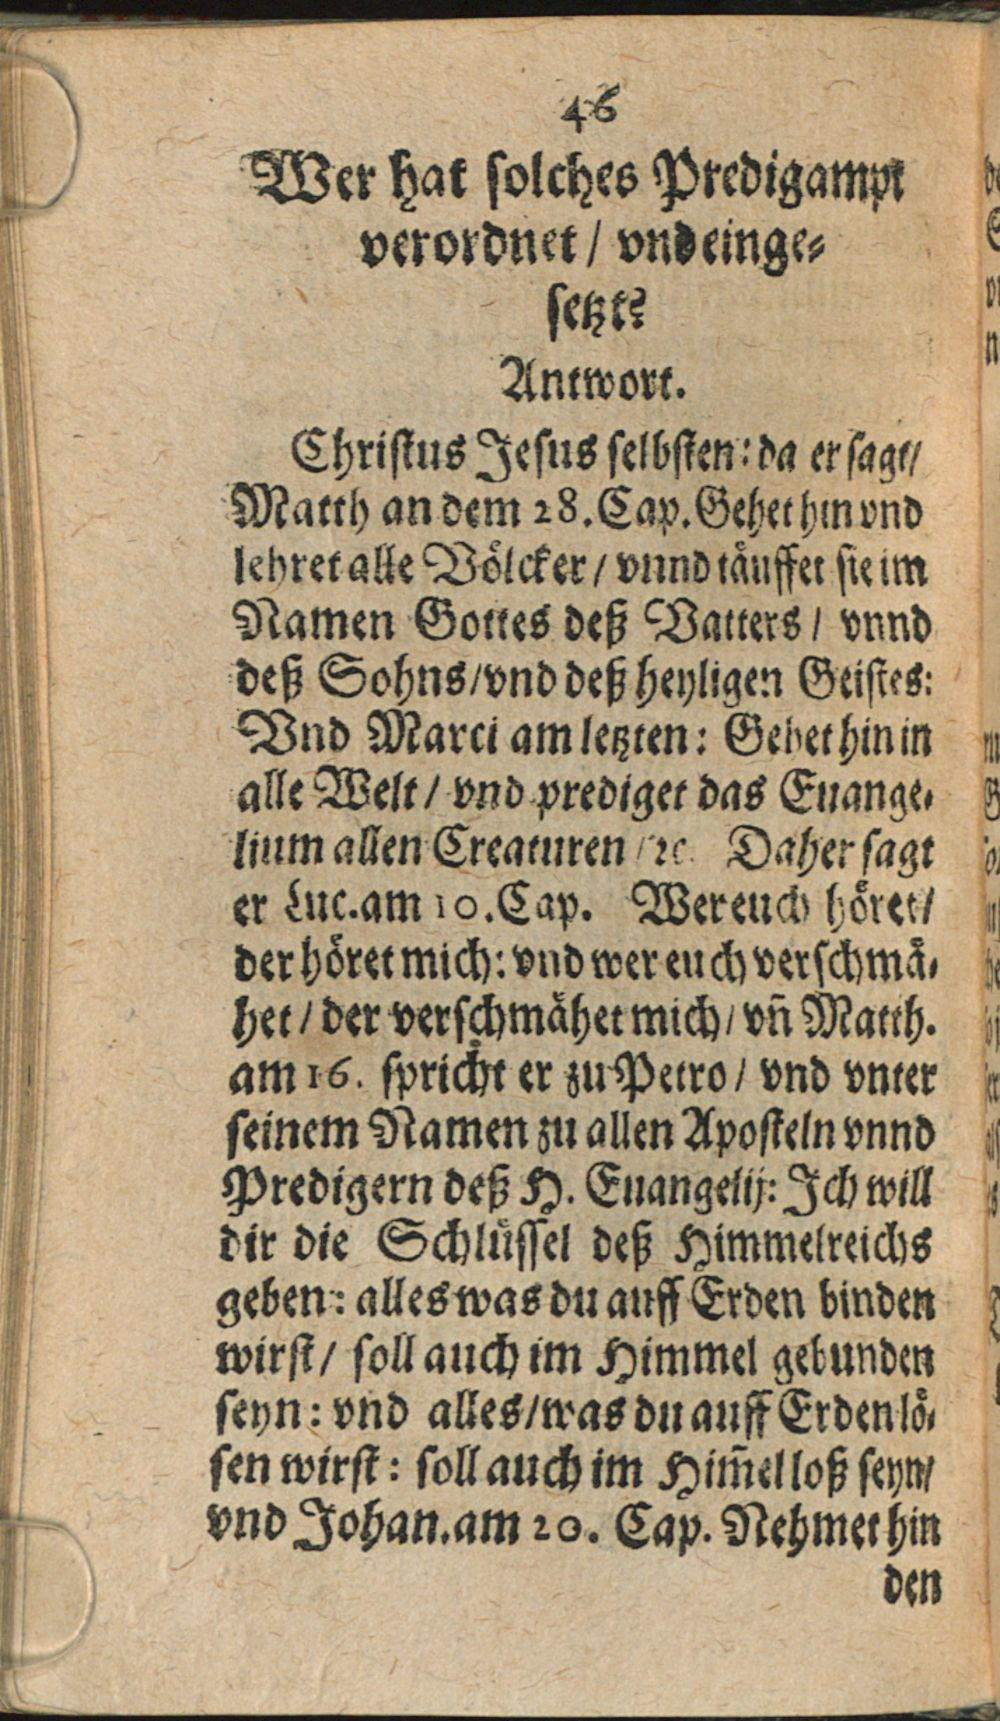 46
Wer hat solches Predigampt
verordnet / vnd einge-
setzt?
Antwort.
Christus Jesus selbsten: da er sagt/
Matth an dem 28. Cap. Gehet hin vnd
lehret alle Völcker / vnnd täuffet sie im
Namen Gottes deß Vatters / vnnd
deß Sohns/vnd deß heyligen Geistes:
Vnd Marci am letzten: Gehet hin in
alle Welt / vnd prediget das Euange-
lium allen Creaturen / ꝛc. Daher sagt
er Luc. am 10. Cap. Wer euch höret/
der höret mich: vnd wer euch verschmä-
het / der verschmähet mich / vñ Matth.
am 16. spricht er zu Petro / vnd vnter
seinem Namen zu allen Aposteln vnnd
Predigern deß H. Euangelij: Ich will
dir die Schlüssel deß Himmelreichs
geben: alles was du auff Erden binden
wirst / soll auch im Himmel gebunden
seyn: vnd alles/was du auff Erden lö-
sen wirst: soll auch im Him̃el loß seyn/
vnd Johan. am 20. Cap. Nehmet hin
den